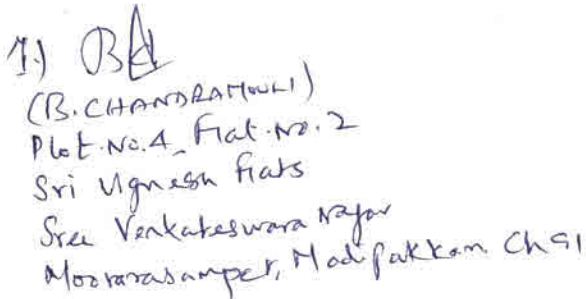 1.)
(B. CHANDRAMOULI)
Plot. No. 4, Flat. No. 2
Sri Vignesh Flats
Sree Venkateswara Nagar
Moovarasampet, Madipakkam Ch 91